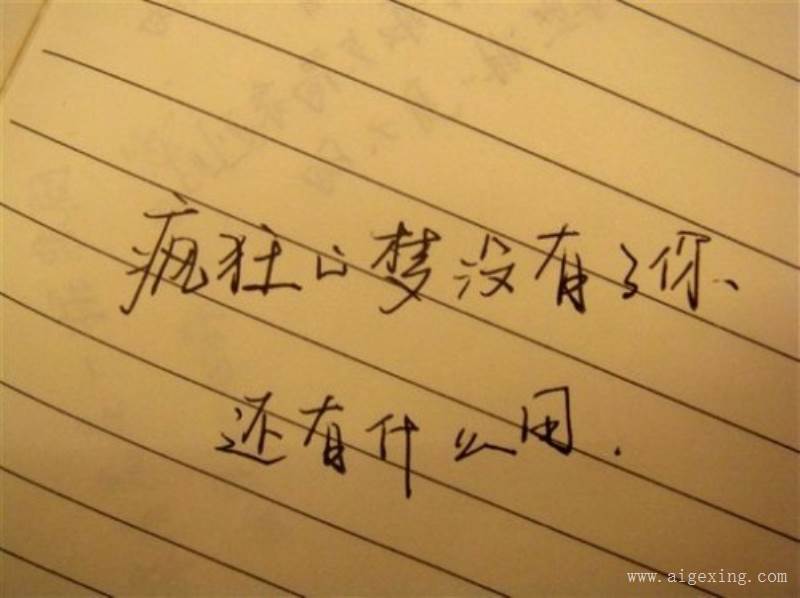 疯狂的梦没有了你、
还有什么用.
www.aigexing.com